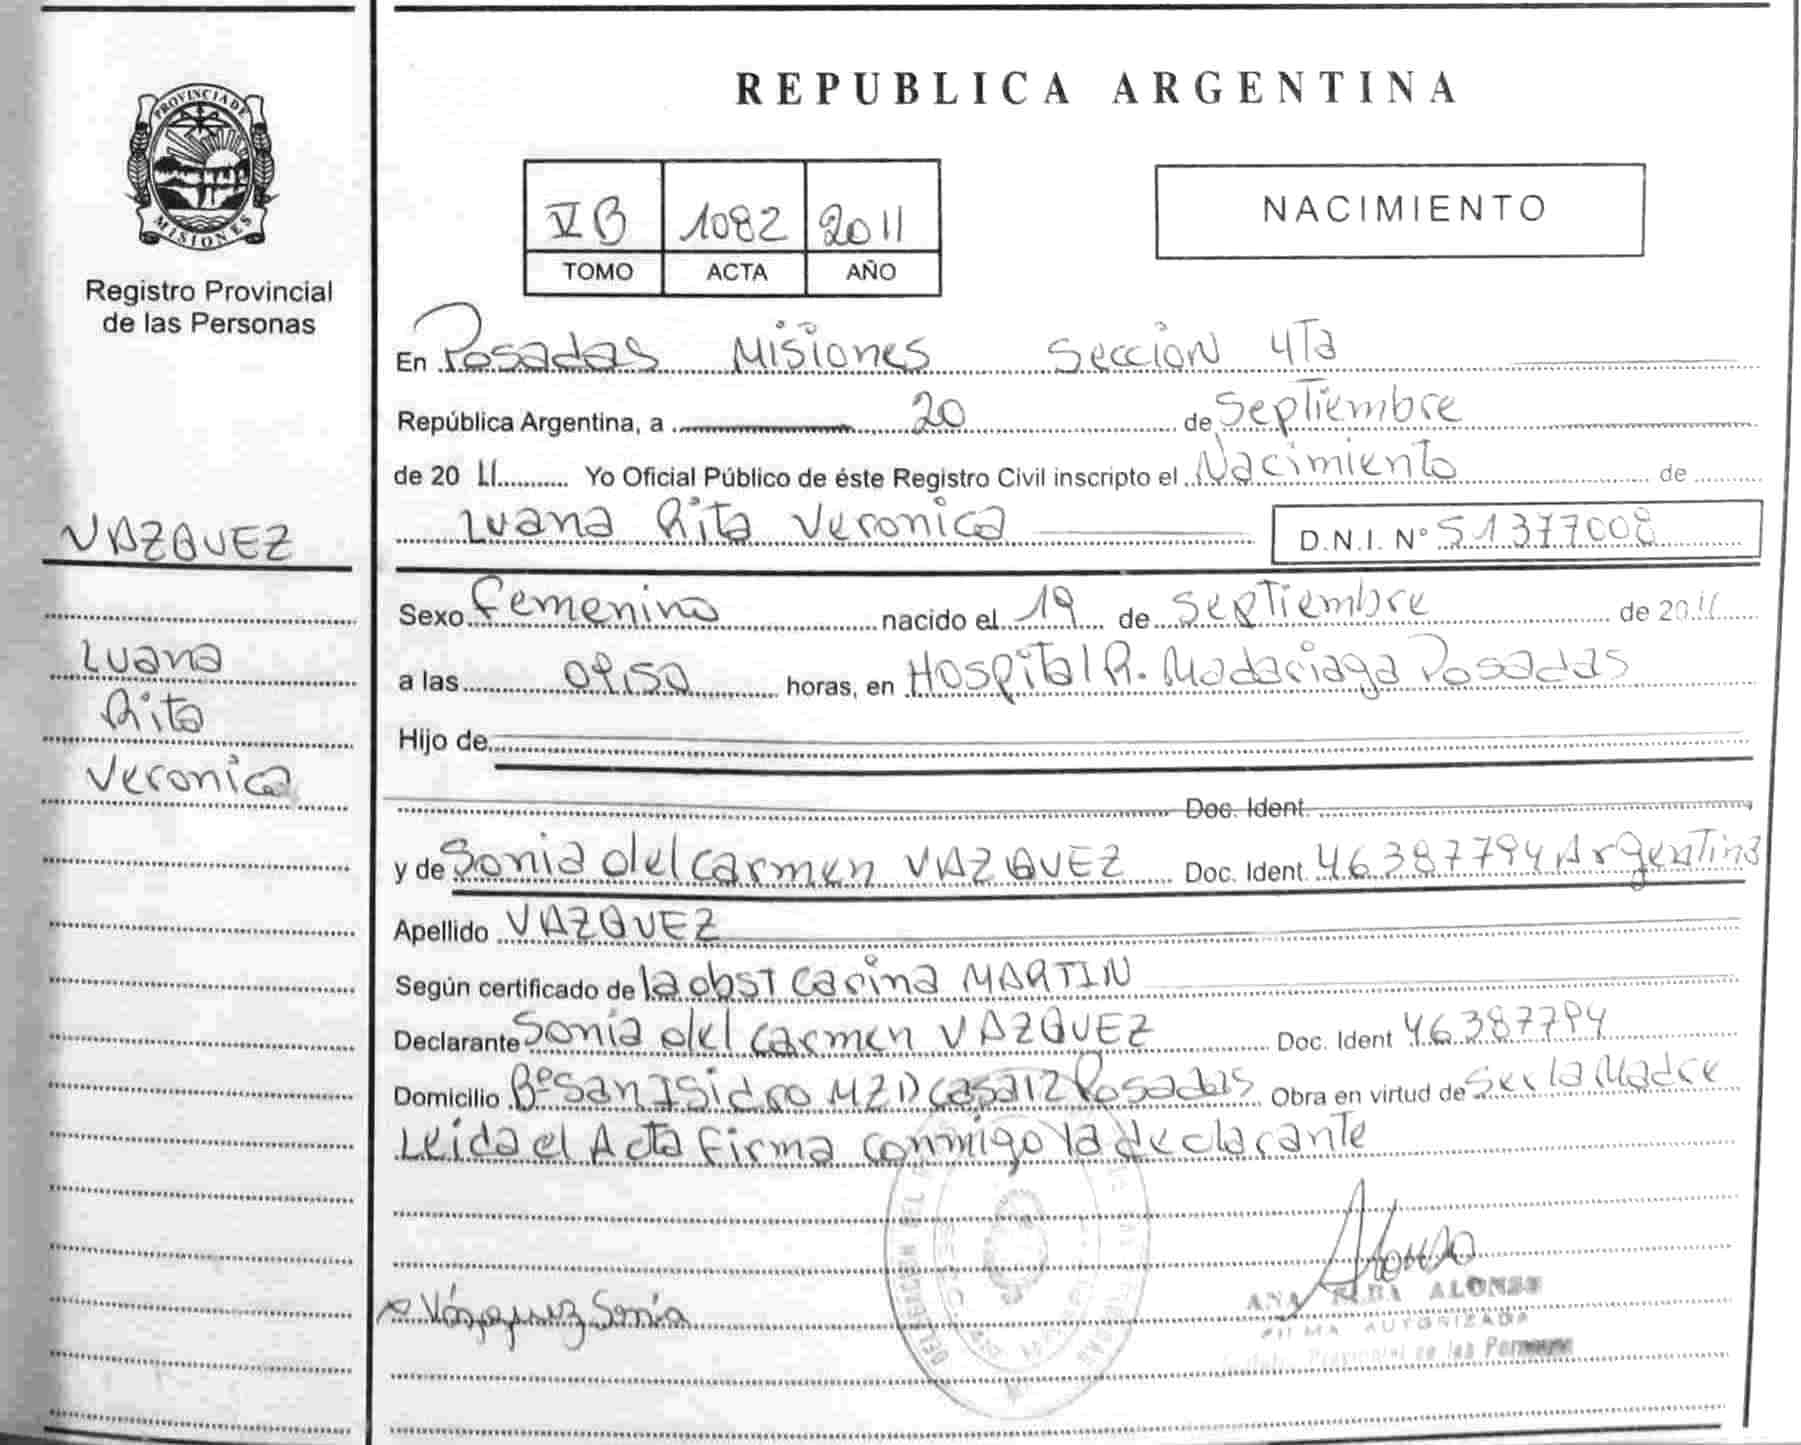 PROVINCIA DE
MISIONES
Registro Provincial
de las Personas
VAZQUEZ
Luana
Rita
Veronica
REPUBLICA ARGENTINA
VB 1082 2011
TOMO ACTA AÑO
NACIMIENTO
En Posadas Misiones Seccion 4Ta
República Argentina, a 20 de Septiembre
de 20 11 Yo Oficial Público de éste Registro Civil inscripto el Nacimiento de
Luana Rita Veronica D.N.I. N° 51377008
Sexo Femenino nacido el 19 de Septiembre de 2011
a las 09,50 horas, en Hospital R. Madariaga Posadas
Hijo de
Doc. Ident.
y de Sonia del Carmen VAZQUEZ Doc. Ident. 46387794 Argentina
Apellido VAZQUEZ
Según certificado de la obst Carina MARTIN
Declarante Sonia del Carmen VAZQUEZ Doc. Ident 46387794
Domicilio B° San Isidro MZ D casa 12 Posadas Obra en virtud de Ser la Madre
Leida el Acta Firma conmigo la declarante
x Vázquez Sonia
ANA ALONSO
FIRMA AUTORIZADA
Provincial de las Personas